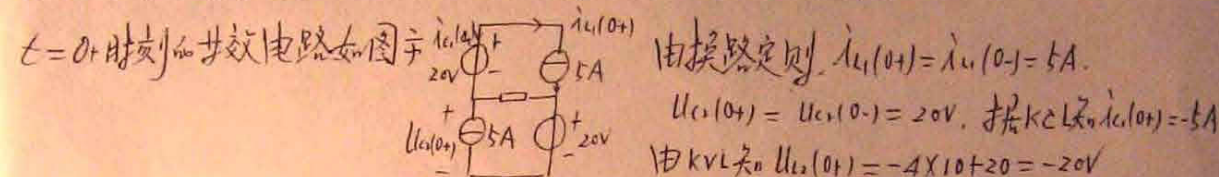 t=0+时刻的等效电路如图示
ic1(0+)
iL1(0+)
+
20V
-
5A
+
uL2(0+)
5A
-
+
20V
-
由换路定则. iL1(0+)=iL1(0-)=5A.
uc2(0+)=uc2(0-)=20V. 据KCL知 ic1(0+)=-5A
由KVL知 uL2(0+)=-4×10+20=-20V